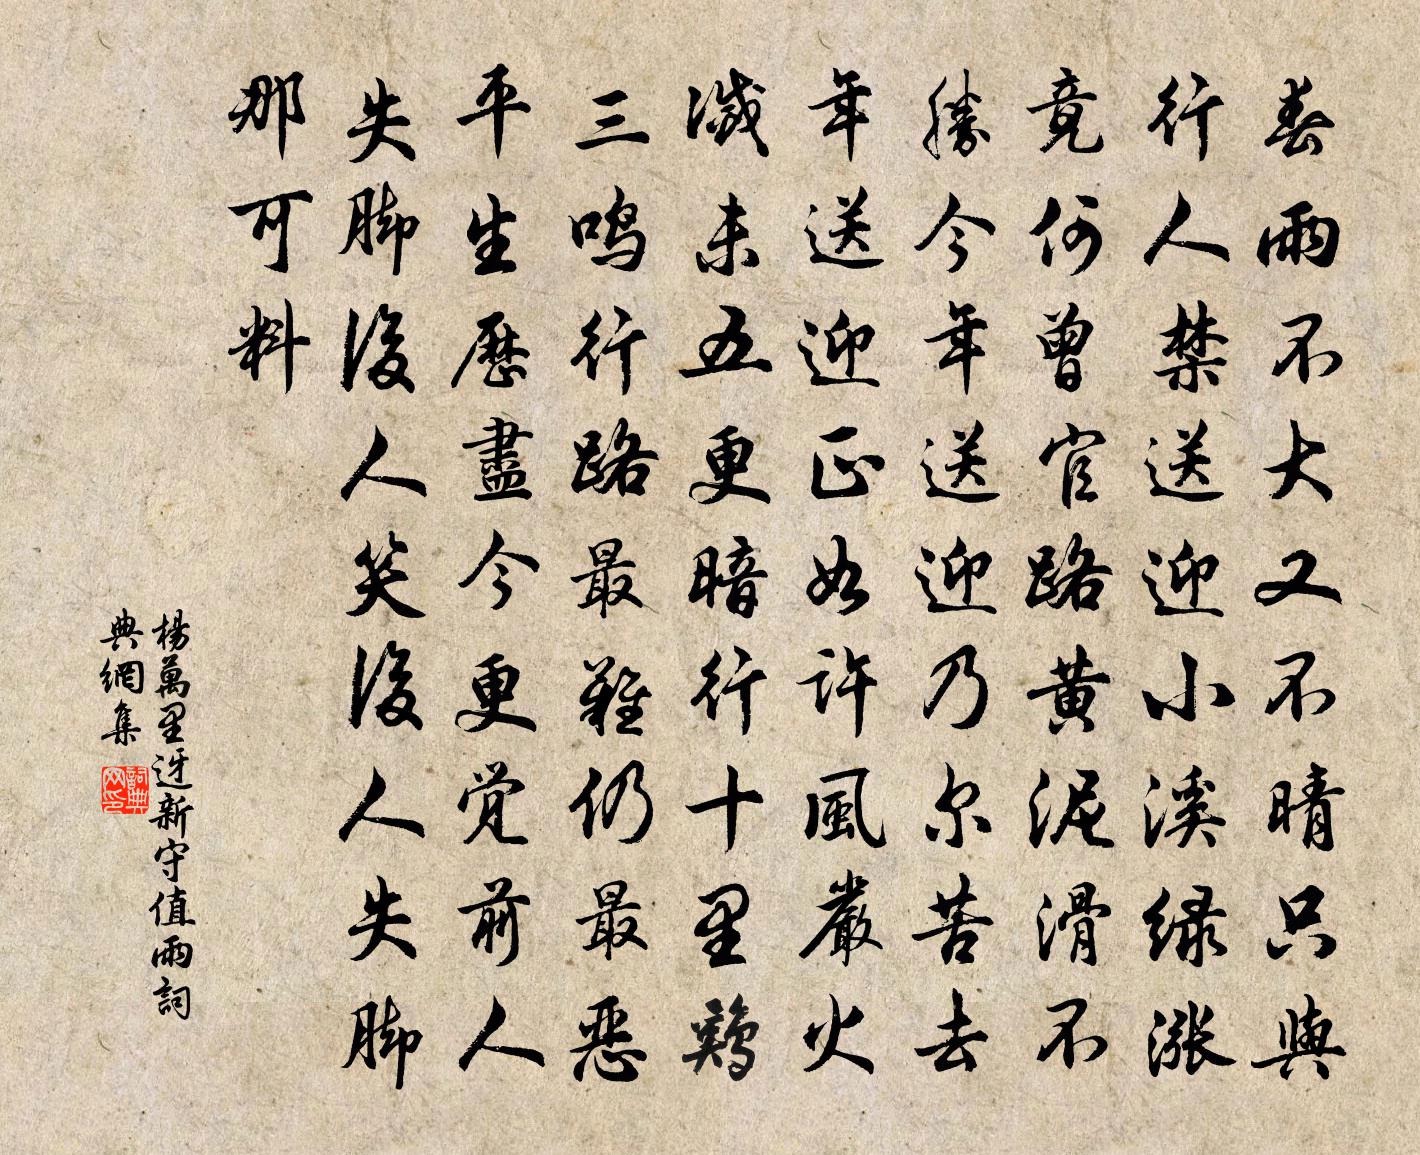 春雨不大又不晴只與
行人禁送迎小溪绿漲
竟何曾官路黄泥滑不
勝今年送迎乃尔苦去
年送迎正如許風嚴火
滅未五更暗行十里鷄
三鸣行路最難仍最惡
平生歷盡今更覺前人
失脚後人笑後人失脚
那可料
楊萬里迓新守值雨詞
典網集
詞典网印